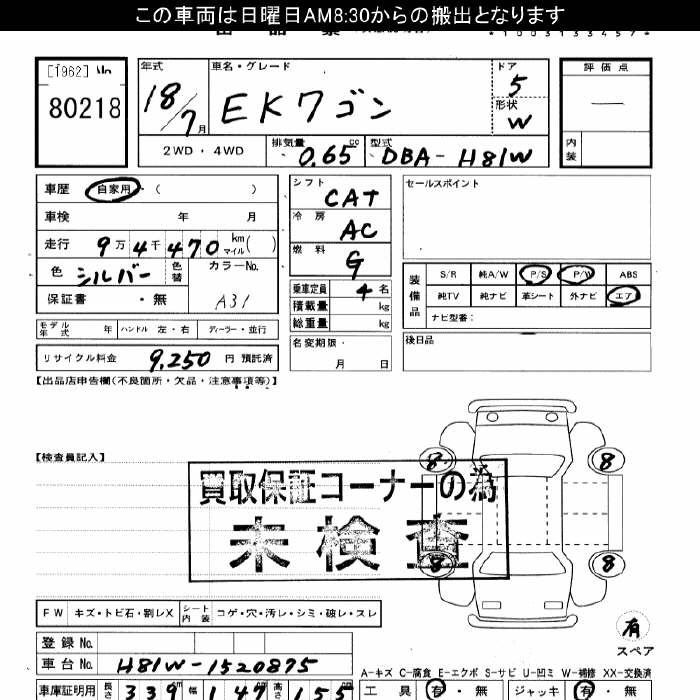 この車両は日曜日AM8:30からの搬出となります
*1003133457*
[1962] No
80218
年式 車名・グレード ドア 評価点
18/7月 EKワゴン 5 —
形状 W
2WD・4WD 排気量 0.65 cc 型式 DBA-H81W 内装
車歴 自家用 ( )
車検 年 月
走行 9万4千470 km マイル( )
色 シルバー 色替 カラーNo.
保証書 ・無 A31
モデル年式 年 ハンドル 左・右 ディーラー・並行
リサイクル料金 9,250 円 預託済
シフト CAT
冷房 AC
燃料 G
乗車定員 4 名
積載量 kg
総重量 kg
名変期限・
月 日
セールスポイント
装備品 S/R 純A/W P/S P/W ABS
純TV 純ナビ 革シート 外ナビ エア
ナビ型番:
後日品
【出品店申告欄(不良箇所・欠品・注意事項等)】
【検査員記入】
買取保証コーナーの為
未検査
8 8
8 8
有
スペア
FW キズ・トビ石・割レX シート内装 コゲ・穴・汚レ・シミ・破レ・スレ
登録No.
車台No. H81W-1520875
A-キズ C-腐食 E-エクボ S-サビ U-凹ミ W-補修 XX-交換済
車庫証明用 長さ 339 幅 147 高さ 155
工具 有・無 ジャッキ 有・無